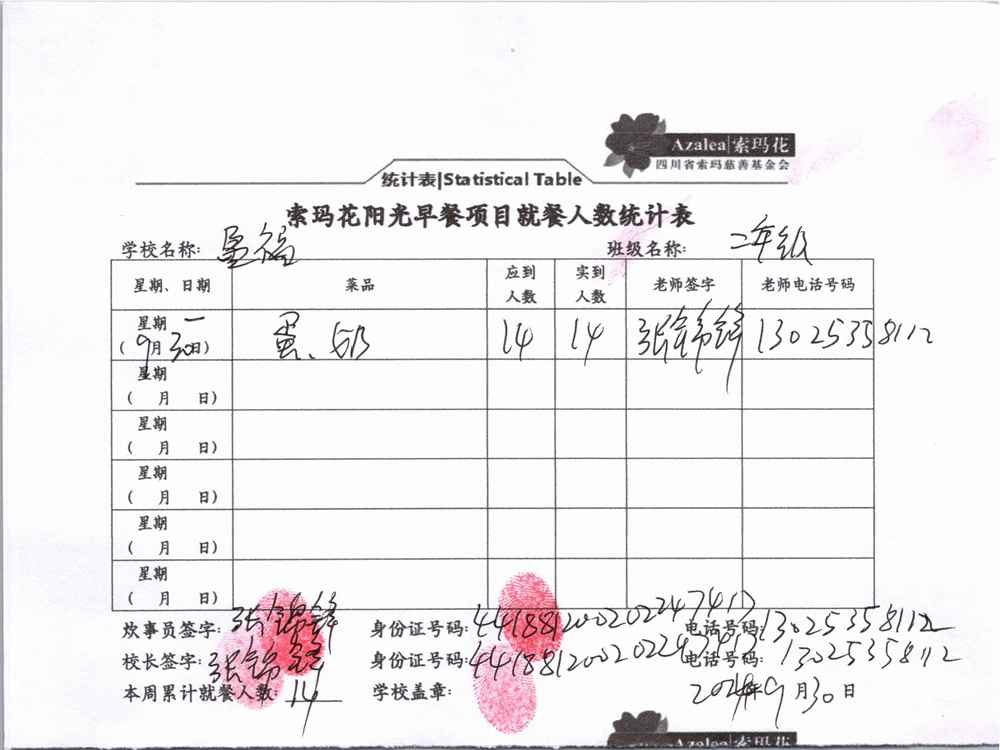 Azalea|索玛花
四川省索玛慈善基金会
统计表|Statistical Table
索玛花阳光早餐项目就餐人数统计表
学校名称: 星福 班级名称: 二年级
星期、日期 菜品 应到人数 实到人数 老师签字 老师电话号码
星期一 (9月30日) 蛋、奶 14 14 张锦锋 13025358112
星期 ( 月 日)
星期 ( 月 日)
星期 ( 月 日)
星期 ( 月 日)
星期 ( 月 日)
炊事员签字: 张锦锋 身份证号码: 441881200202247412 电话号码: 13025358112
校长签字: 张锦锋 身份证号码: 441881200202247412 电话号码: 13025358112
本周累计就餐人数: 14 学校盖章: 2024年9月30日
Azalea|索玛花